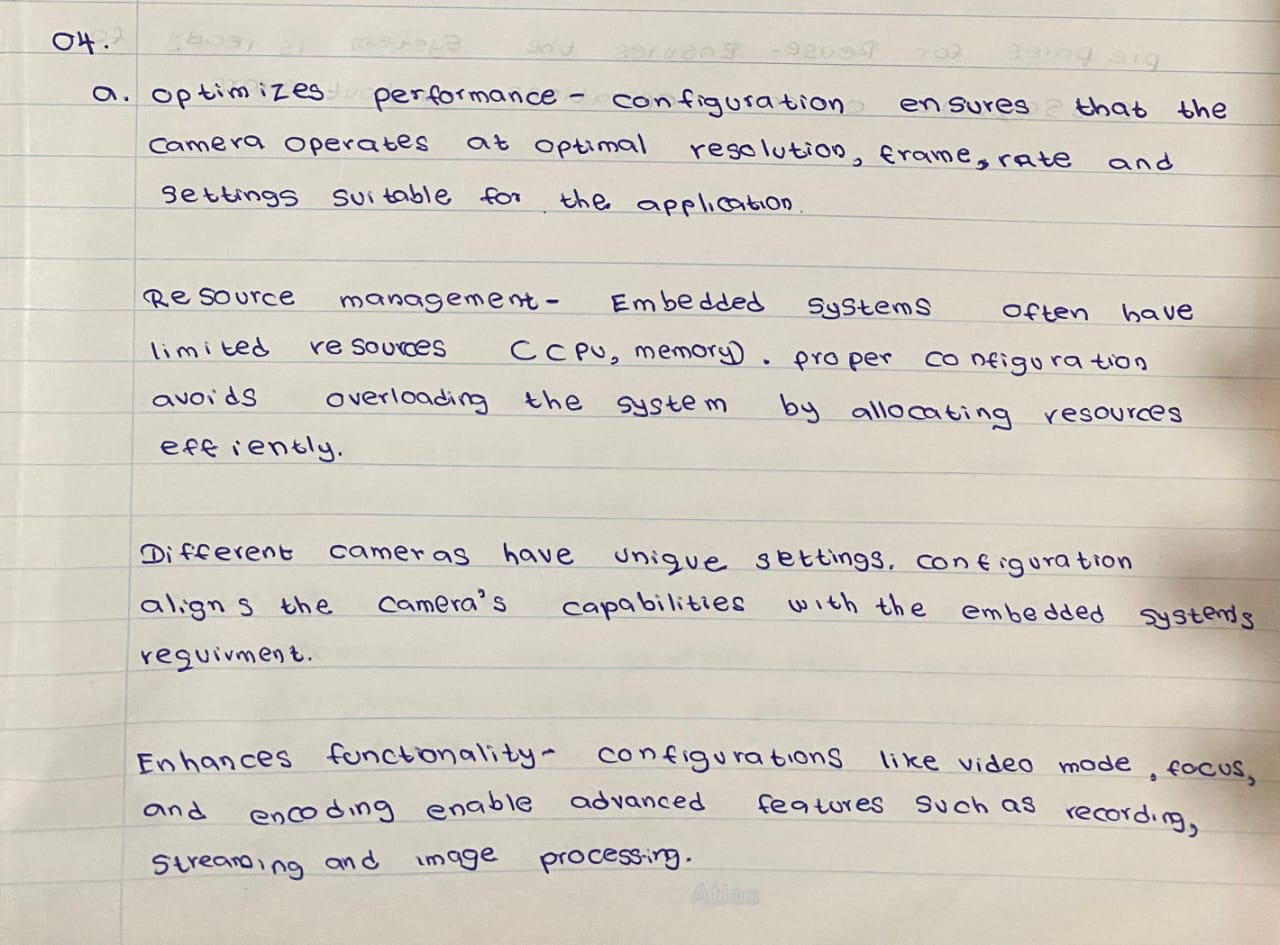 04.
a. optimizes performance - configuration ensures that the
camera operates at optimal resolution, frame, rate and
settings suitable for the application.
Resource management - Embedded systems often have
limited resources (CPU, memory). proper configuration
avoids overloading the system by allocating resources
effiently.
Different cameras have unique settings. configuration
aligns the camera's capabilities with the embedded systems
requirment.
Enhances functionality - configurations like video mode, focus,
and encoding enable advanced features such as recording,
streaming and image processing.
Atlas